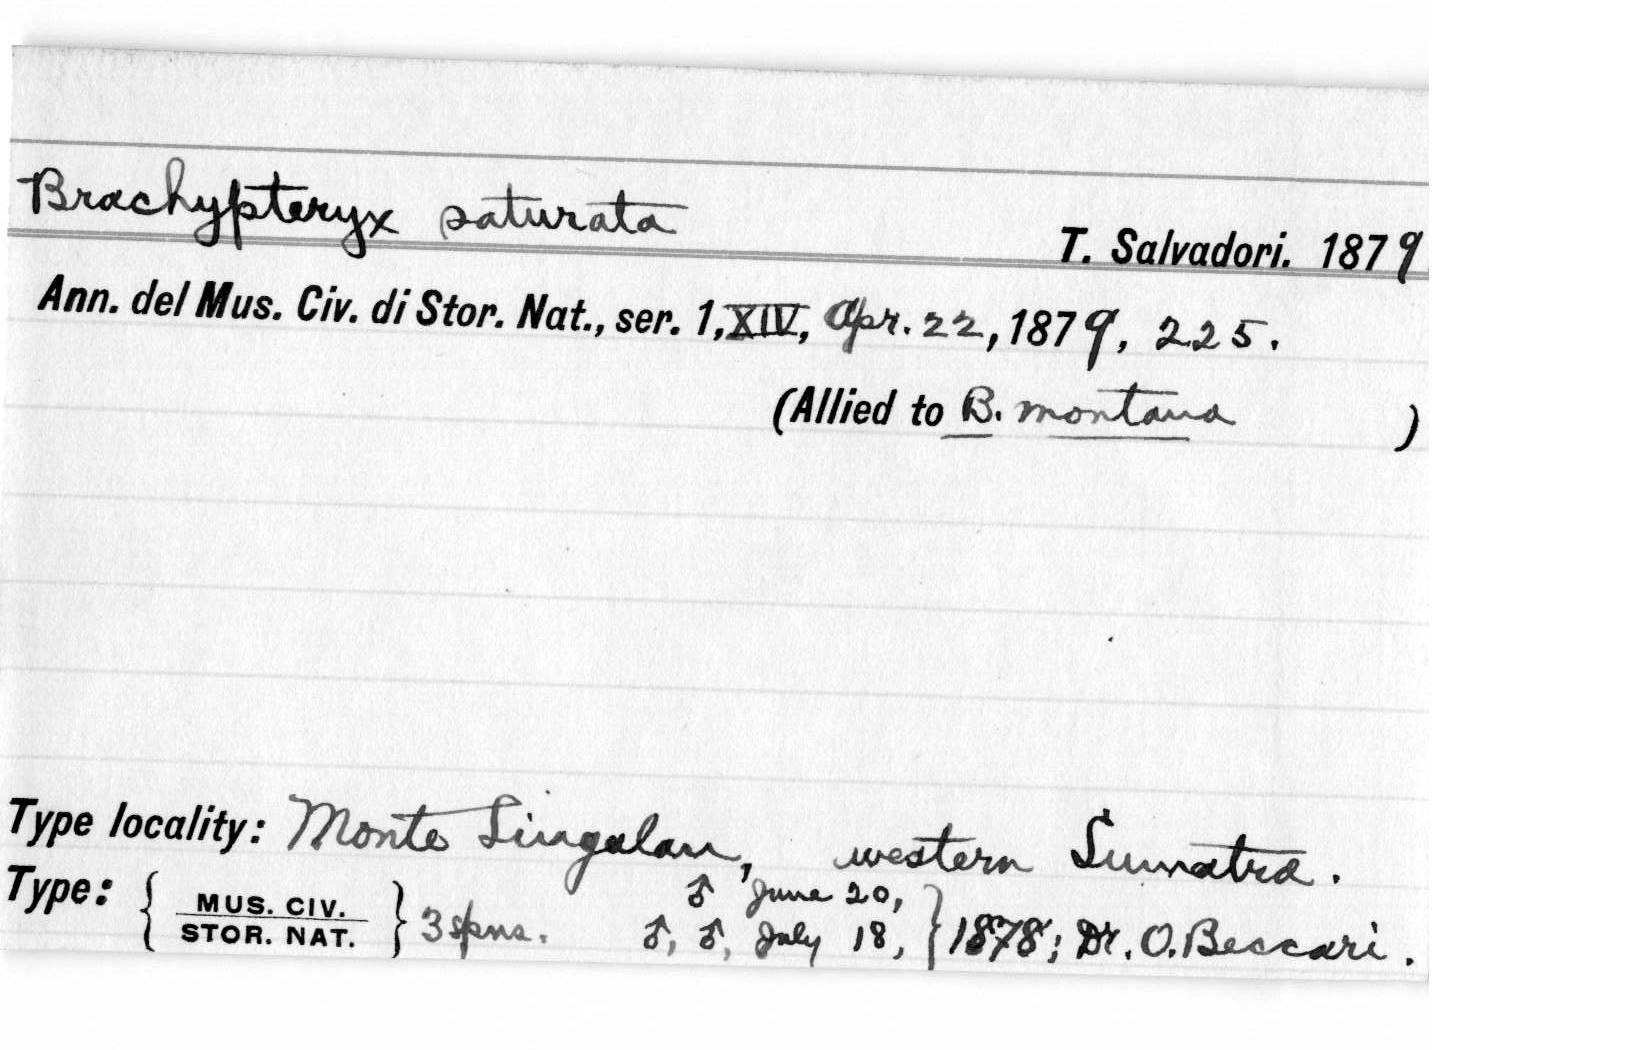 Brachypteryx saturata
T. Salvadori. 1879
Ann. del Mus. Civ. di Stor. Nat., ser. 1, XIV, Apr. 22, 1879, 225.
(Allied to B. montana )
Type locality: Monte Singalan, western Sumatra.
Type: { MUS. CIV. STOR. NAT. } 3 spns. ♂ June 20, ♂, ♂, July 18, } 1878; Dr. O. Beccari.